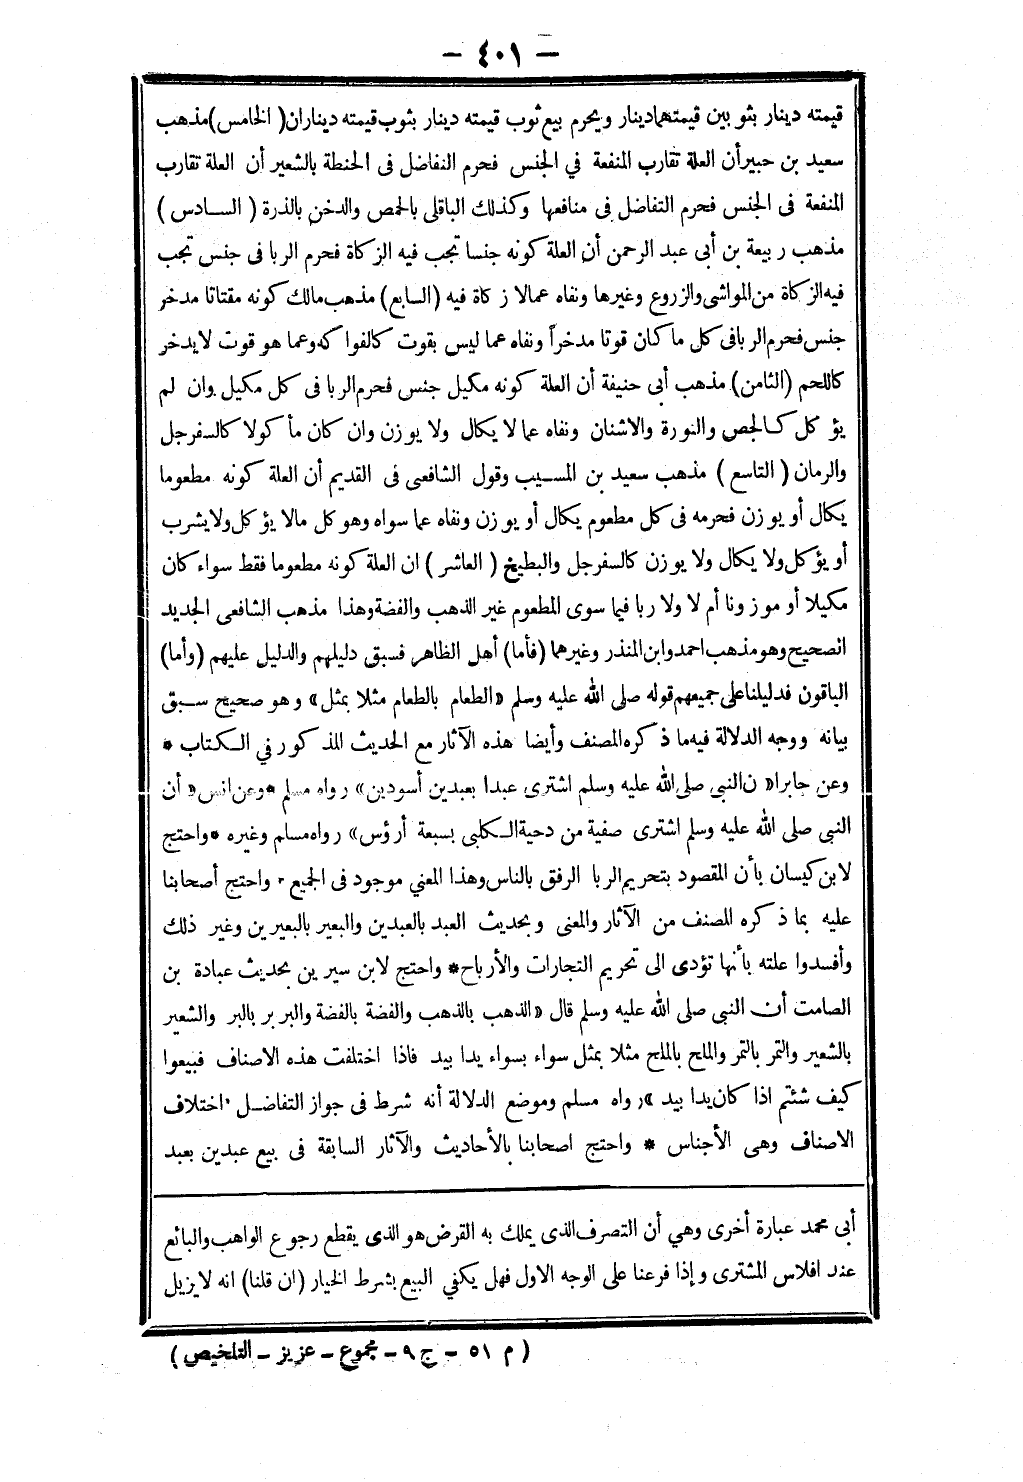 — ٤٠١ —
قيمته دينار بثوبين قيمتهمادينار ويحرم بيع ثوب قيمته دينار بثوب قيمته ديناران (الخامس) مذهب
سعيد بن جبيرأن العلة تقارب المنفعة في الجنس فحرم التفاضل فى الحنطة بالشعير أن العلة تقارب
المنفعة فى الجنس فحرم التفاضل فى منافعها وكذلك الباقلى بالحمص والدخن بالذرة ( السادس )
مذهب ربيعة بن أبى عبد الرحمن أن العلة كونه جنسا تجب فيه الزكاة فحرم الربا فى جنس تجب
فيه الزكاة من المواشى والزروع وغيرها ونفاه عمالا زكاة فيه (السابع) مذهب مالك كونه مقتاتا مدخر
جنس فحرم الربا فى كل ما كان قوتا مدخراً ونفاه عما ليس بقوت كالفواكه وعما هو قوت لايدخر
كاللحم (الثامن) مذهب أبى حنيفة أن العلة كونه مكيل جنس فحرم الربا فى كل مكيل وان لم
يؤكل كالجص والنورة والاشنان ونفاه عما لا يكال ولا يوزن وان كان مأكولا كالسفرجل
والرمان ( التاسع ) مذهب سعيد بن المسيب وقول الشافعى فى القديم أن العلة كونه مطعوما
يكال أو يوزن فحرمه فى كل مطعوم يكال أو يوزن ونفاه عما سواه وهو كل مالا يؤكل ولا يشرب
أو يؤكل ولا يكال ولا يوزن كالسفرجل والبطيخ ( العاشر ) ان العلة كونه مطعوما فقط سواء كان
مكيلا أو موزونا أم لا ولا ربا فيما سوى المطعوم غير الذهب والفضة وهذا مذهب الشافعى الجديد
الصحيح وهو مذهب احمد وابن المنذر وغيرهما (فأما) أهل الظاهر فسبق دليلهم والدليل عليهم (وأما)
الباقون فدليلنا على جميعهم قوله صلى الله عليه وسلم «الطعام بالطعام مثلا بمثل» وهو صحيح سبق
بيانه ووجه الدلالة فيه ما ذكره المصنف وأيضا هذه الآثار مع الحديث المذكور في الكتاب *
وعن جابر «أن النبى صلى الله عليه وسلم اشترى عبدا بعبدين أسودين» رواه مسلم *وعن انس «أن
النبى صلى الله عليه وسلم اشترى صفية من دحية الكلبى بسبعة أرؤس» رواه مسلم وغيره *واحتج
لابن كيسان بأن المقصود بتحريم الربا الرفق بالناس وهذا المعنى موجود فى الجميع * واحتج أصحابنا
عليه بما ذكره المصنف من الآثار والمعنى وبحديث العبد بالعبدين والبعير بالبعيرين وغير ذلك
وأفسدوا علته بأنها تؤدى الى تحريم التجارات والأرباح* واحتج لابن سيرين بحديث عبادة بن
الصامت أن النبى صلى الله عليه وسلم قال «الذهب بالذهب والفضة بالفضة والبر بر بالبر والشعير
بالشعير والتمر بالتمر والملح بالملح مثلا بمثل سواء بسواء يدا بيد فاذا اختلفت هذه الاصناف فبيعوا
كيف شئتم اذا كان يدا بيد» رواه مسلم وموضع الدلالة أنه شرط فى جواز التفاضل اختلاف
الاصناف وهى الأجناس * واحتج اصحابنا بالأحاديث والآثار السابقة فى بيع عبدين بعبد
أبى محمد عبارة أخرى وهي أن التصرف الذى يملك به القرض هو الذى يقطع رجوع الواهب والبائع
عند افلاس المشترى وإذا فرعنا على الوجه الاول فهل يكفي البيع بشرط الخيار (ان قلنا) انه لا يزيل
( م ٥١ — ج ٩ — مجموع — عزيز — التلخيص )